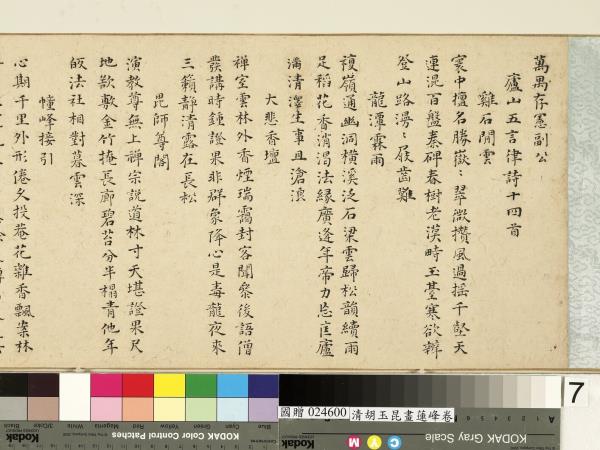 萬異存憲副公
廬山五言律詩十四首
雞石開雲
寰中擅名勝嶽々翠微攢風過搖千壑天
連混百盤秦碑春樹老漢畤玉臺寒欲辦
登山路漫々屐齒難
龍潭霖雨
複嶺通幽洞橫溪泛石梁雲歸松韻續雨
足稻花香消渴法緣廣逢年帝力忘匡廬
瀟清澤生事且滄浪
大悲香壇
禪室雲林外香煙瑞靄封客闌眾後語僧
發講時鍾證果非群象降心是毒龍夜來
三籟靜清露在長松
毘師尊閣
演教尊無上禪宗說道林寸天堪證果尺
地欲敷金竹掩長廊碧苔分半榻青他年
皈法社相對暮雲深
幢峰接引
心期千里外形徳久投菴花雜香飄案林
7
國贈 024600
清胡玉昆畫蓮峰卷
Kodak
KODAK Color Control Patches
KODAK Gray Scale
C
Y
M
Blue
Cyan
Green
Yellow
Red
Magenta
White
3/Color
Black